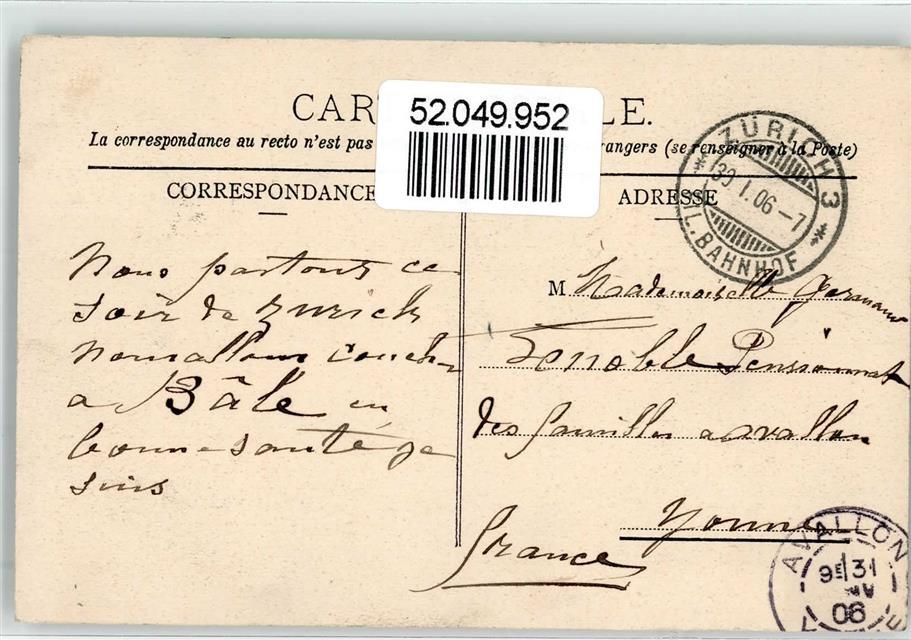 52.049.952
CAR LE.
La correspondance au recto n'est pas rangers (se renseigner à la Poste)
CORRESPONDANCE
ADRESSE
ZÜRICH 3
30 I. 06 - 7
FIL. BAHNHOF
Nous partons ce
soir de Zurich
nous allons couche
a Bâle en
bonne santé je
suis
M Mademoiselle Germaine
Lenoble Pensionnat
des familles a avallon
Yonne
France
AVALLON
9E 31
06